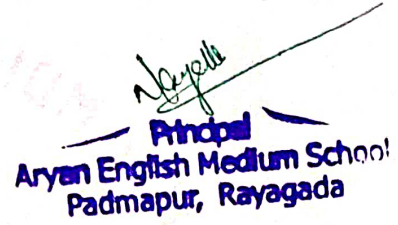 Principal
Aryan English Medium School
Padmapur, Rayagada